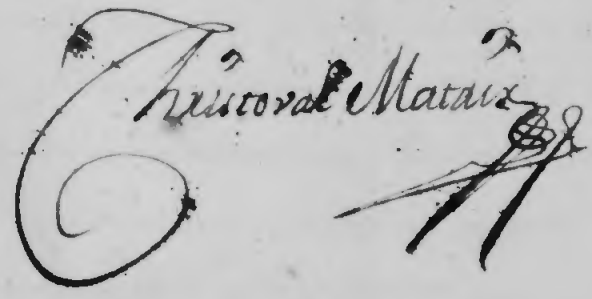 Christoval Mataix